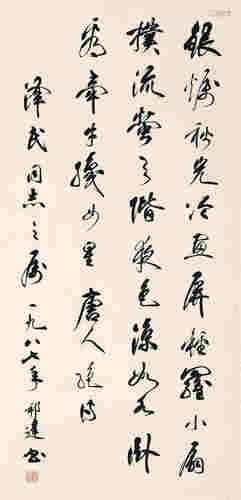 銀燭秋光冷畫屏輕羅小扇
撲流螢天階夜色涼如水臥
看牽牛織女星 唐人絕
澤民同志之屬 一九八七年 祁 書